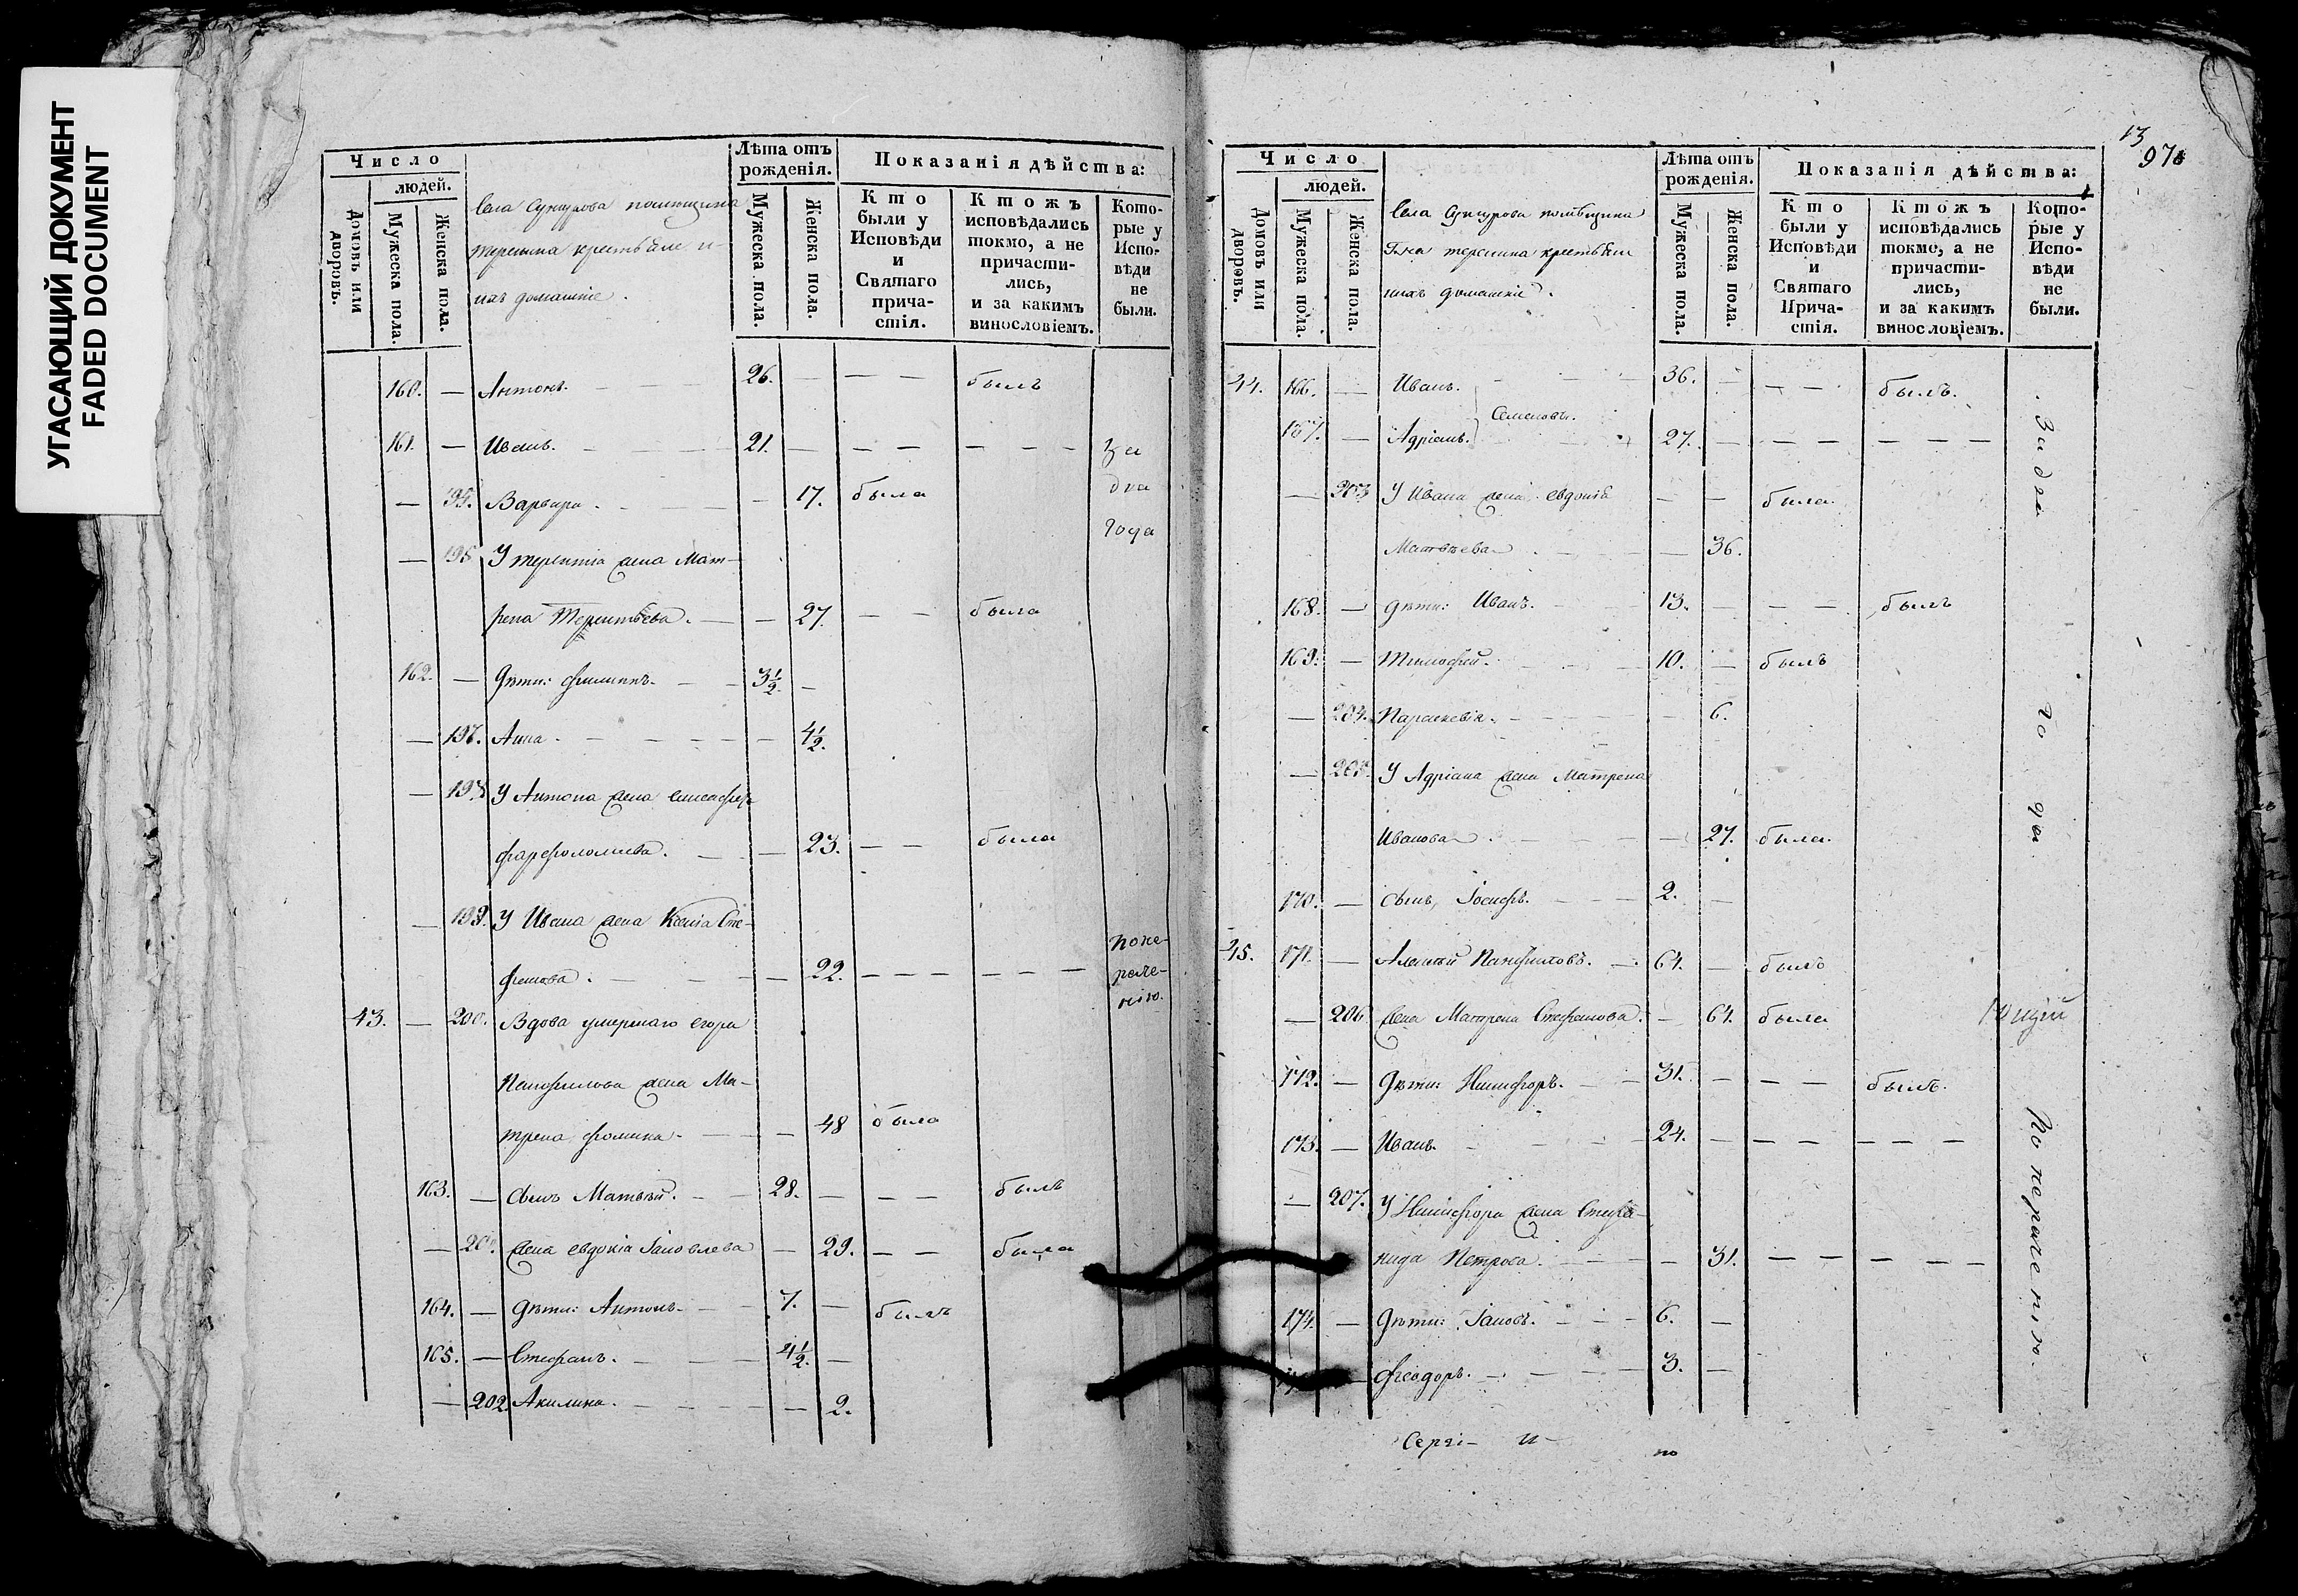 УГАСАЮЩИЙ ДОКУМЕНТ
FADED DOCUMENT
Число
людей.
Домовъ или дворовъ.
Мужеска пола.
Женска пола.
Села Сунгурова помещика
терешина крестьяне и
ихъ домашніе.
Лѣта отъ рожденія.
Мужеска пола.
Женска пола.
Показанія дѣйства:
Кто были у Исповѣди и Святаго прича-стія.
Ктожъ исповѣдались токмо, а не причасти-лись, и за какимъ винословіемъ.
Кото-рые у Испо-вѣди не были.
160. — Антонъ. — 26. — — — былъ
161. — Иванъ. — 21. — — — — — — За
— 195. Варвара. — — 17. была два
года
— 196 У терентія жена Мат-
рена Терентьева. — — 27. — — была
162. — Дѣти: Филиппъ. — 3½. —
— 197. Анна. — — 4½.
— 198 У Антона жена Елисафе
фарфоломеева. — — 23. — — была
— 199. У Ивана жена Ксенія Сте-
фанова. — — 22. — — — — — — по не-
раче-
нію.
43. — 200. Вдова умершаго егора
Панфилова жена Ма-
трена фомина. — — 48 была
163. — сынъ Матвѣй. — 28. — — — былъ
— 201. жена евдокіа Іаковлева — 29. — — была
164. — дѣти: Антонъ. — 7. — былъ
165. — Стефанъ. — 4½. —
— 202. Акилина. — — 2.
13
971
Число
людей.
Домовъ или дворовъ.
Мужеска пола.
Женска пола.
Села Сунгурова помѣщика
Г-на терешина крестьяне
ихъ домашніе.
Лѣта отъ рожденія.
Мужеска пола.
Женска пола.
Показанія дѣйства:
Кто были у Исповѣди и Святаго Прича-стія.
Ктожъ исповѣдались токмо, а не причасти-лись, и за какимъ винословіемъ.
Кото-рые у Испо-вѣди не были.
44. 166. — Иванъ. — 36. — — — былъ.
Семеновы.
167. — Адріанъ. — 27. — — — — — — —
За два года
— 203 У Ивана жена евдокіа — — была
Матвѣева — — 36.
168. — дѣти: Иванъ. — 13. — — былъ
169. — Тимофей. — 10. — былъ
— 204. Параскевіа. — — 6.
— 205. У Адріана жена Матрена
Иванова — — 27. была.
170. — сынъ Іосифъ. — 2. —
45. 171. — Алексѣй Панфиловъ. — 64. — былъ
— 206 жена Матрена Стефанова. — 64. была
172. — Дѣти: Никифоръ. — 31. — — — былъ.
173. — Иванъ. — 24. — — — — — —
По нераченію.
— 207. У Никифора жена Стефа-
нида Петрова. — — 31. — — — — — —
174. — Дѣти: Іаковъ. — 6. —
— Феодоръ. — 3. —
Сергі- и- по